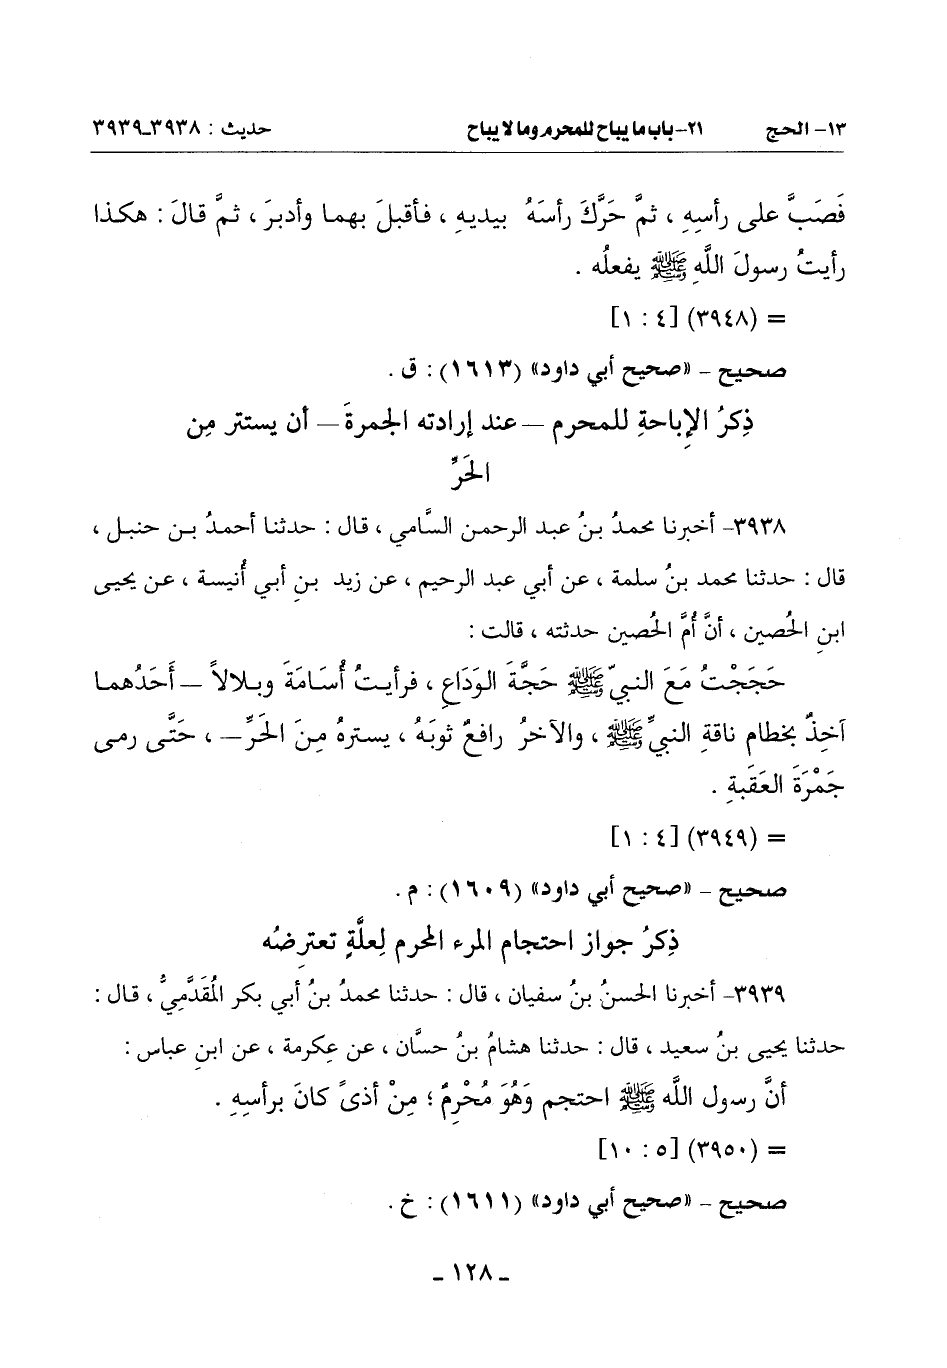 ١٣- الحج ٢١-باب ما يباح للمحرم وما لا يباح حديث : ٣٩٣٨-٣٩٣٩
فَصَبَّ على رأسِهِ ، ثمَّ حَرَّكَ رأسَهُ بيديهِ ، فأقبلَ بهما وأدبرَ ، ثمَّ قالَ : هكذا
رأيتُ رسولَ اللَّهِ ﷺ يفعلُه .
= (٣٩٤٨) [٤ : ١]
صحيح - «صحيح أبي داود» (١٦١٣) : ق .
ذِكرُ الإباحةِ للمحرم – عند إرادته الجمرةَ – أن يستتر مِن
الحَرِّ
٣٩٣٨- أخبرنا محمدُ بنُ عبد الرحمن السَّامي ، قال : حدثنا أحمدُ بن حنبل ،
قال : حدثنا محمد بنُ سلمة ، عن أبي عبد الرحيم ، عن زيد بنِ أبي أُنيسة ، عن يحيى
ابنِ الحُصين ، أنَّ أُمَّ الحُصين حدثته ، قالت :
حَجَجْتُ مَعَ النبيّ ﷺ حَجَّةَ الوَدَاعِ ، فرأيتُ أُسَامَةَ وبلالاً – أَحَدُهما
آخِذٌ بخطام ناقةِ النبيِّ ﷺ ، والآخرُ رافعٌ ثوبَهُ ، يسترهُ مِنَ الحَرِّ – ، حَتَّى رمى
جَمْرَةَ العَقَبةِ .
= (٣٩٤٩) [٤ : ١]
صحيح - «صحيح أبي داود» (١٦٠٩) : م .
ذِكرُ جواز احتجام المرء المحرم لِعلَّةٍ تعترِضُه
٣٩٣٩- أخبرنا الحسنُ بنُ سفيان ، قال : حدثنا محمدُ بنُ أبي بكر المُقَدَّمِيُّ ، قال :
حدثنا يحيى بنُ سعيد ، قال : حدثنا هشامُ بنُ حسَّان ، عن عِكرمة ، عن ابنِ عباس :
أنَّ رسول اللَّه ﷺ احتجم وَهُوَ مُحْرِمٌ ؛ مِنْ أذىً كانَ برأسِهِ .
= (٣٩٥٠) [٥ : ١٠]
صحيح - «صحيح أبي داود» (١٦١١) : خ .
- ١٢٨ -